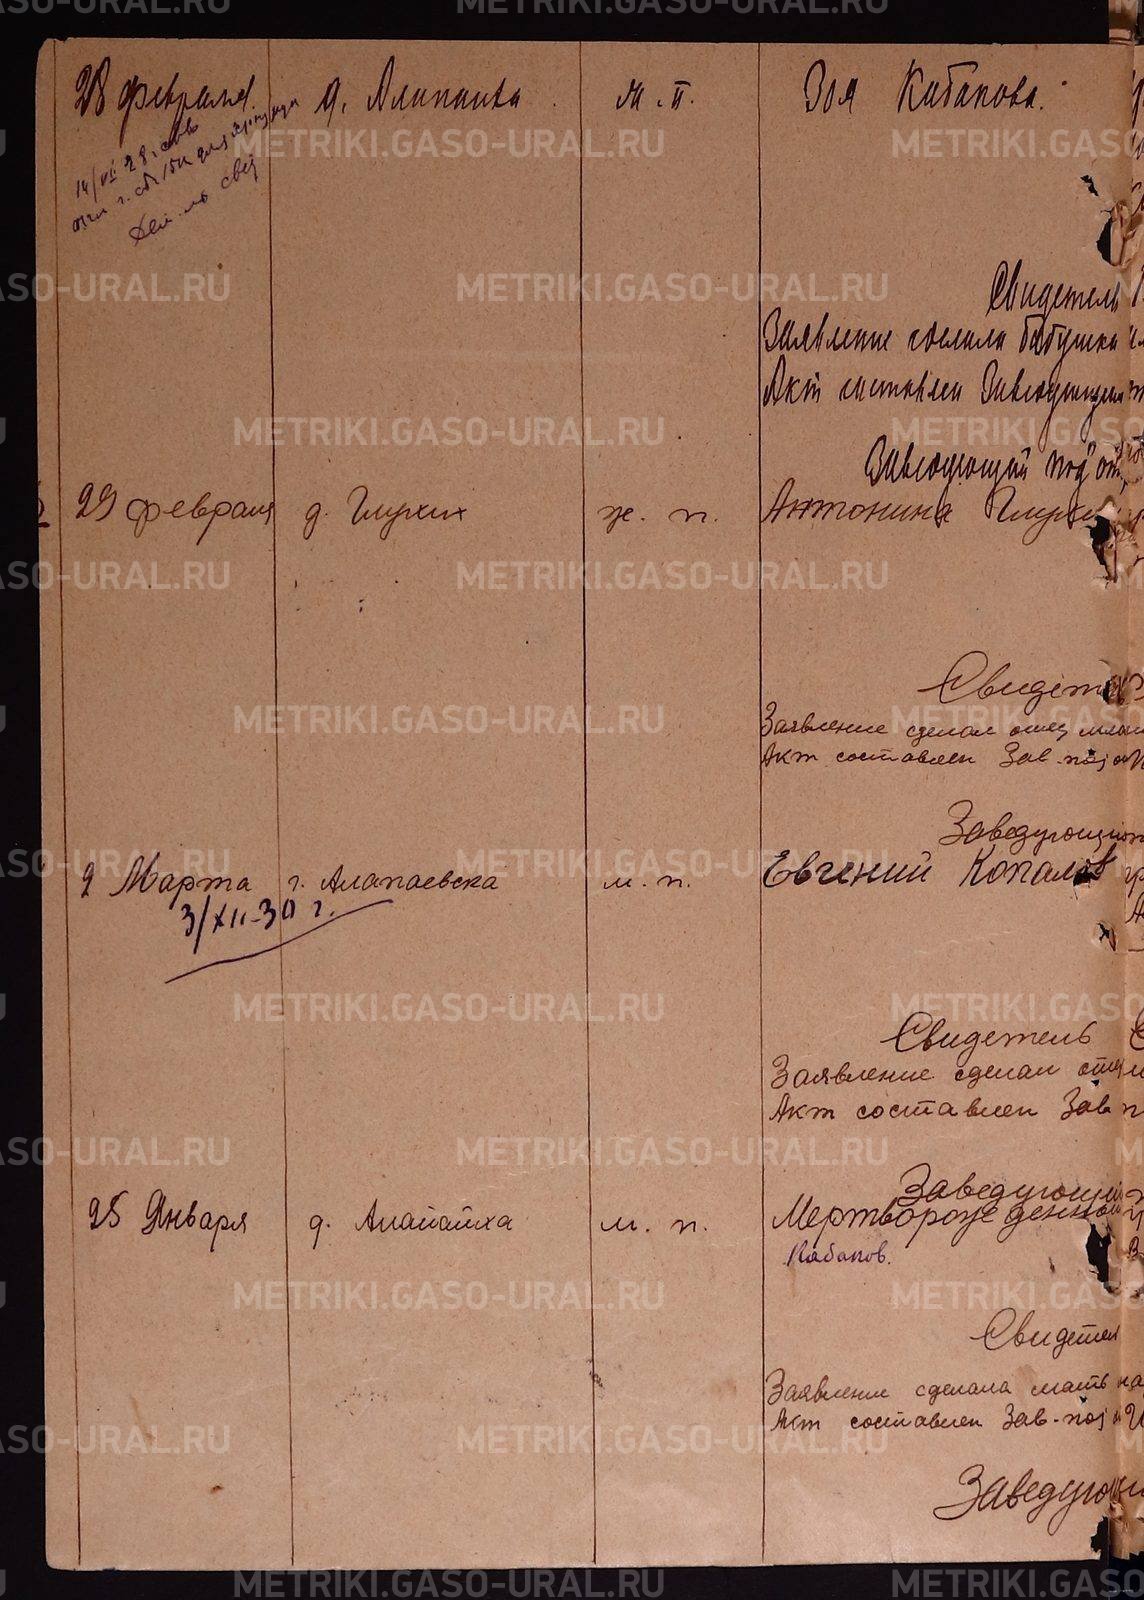 28 февраля.
д. Алапаиха
м. п.
Зоя Кабакова.
14/VII 28
Свидетель
Заявление сделала бабушка
Акт составлен Заведующим
Заведующий под от
29 февраля
д. Глухих
ж. п.
Антонина Глухи
Свидет
Заявление сделал отец
Акт составлен Зав. под
Заведующи
2 Марта
г. Алапаевска
м. п.
Евгений Копалов
3/XII-30 г.
Свидетель
Заявление сделал отец
Акт составлен Зав
Заведующи
25 Января
д. Алапаиха
м. п.
Мертворожденный
Кабаков.
Свидетел
Заявление сделала мать
Акт составлен Зав-под
Заведующ
METRIKI.GASO-URAL.RU